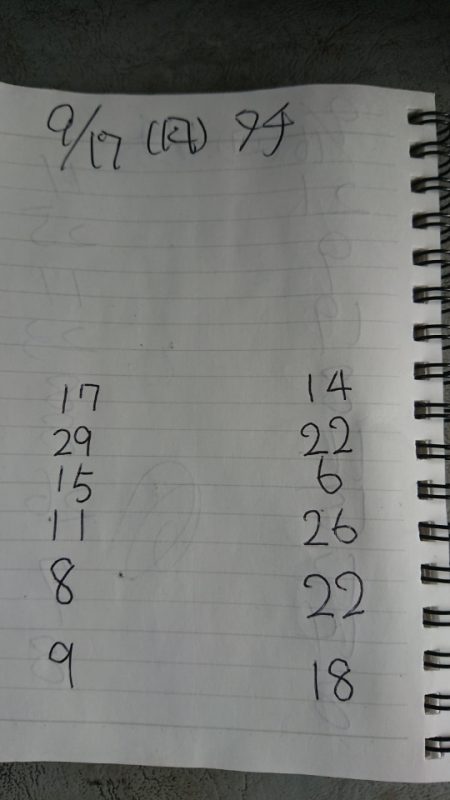 9/17
17 14
29 22
15 6
11 26
8 22
9 18